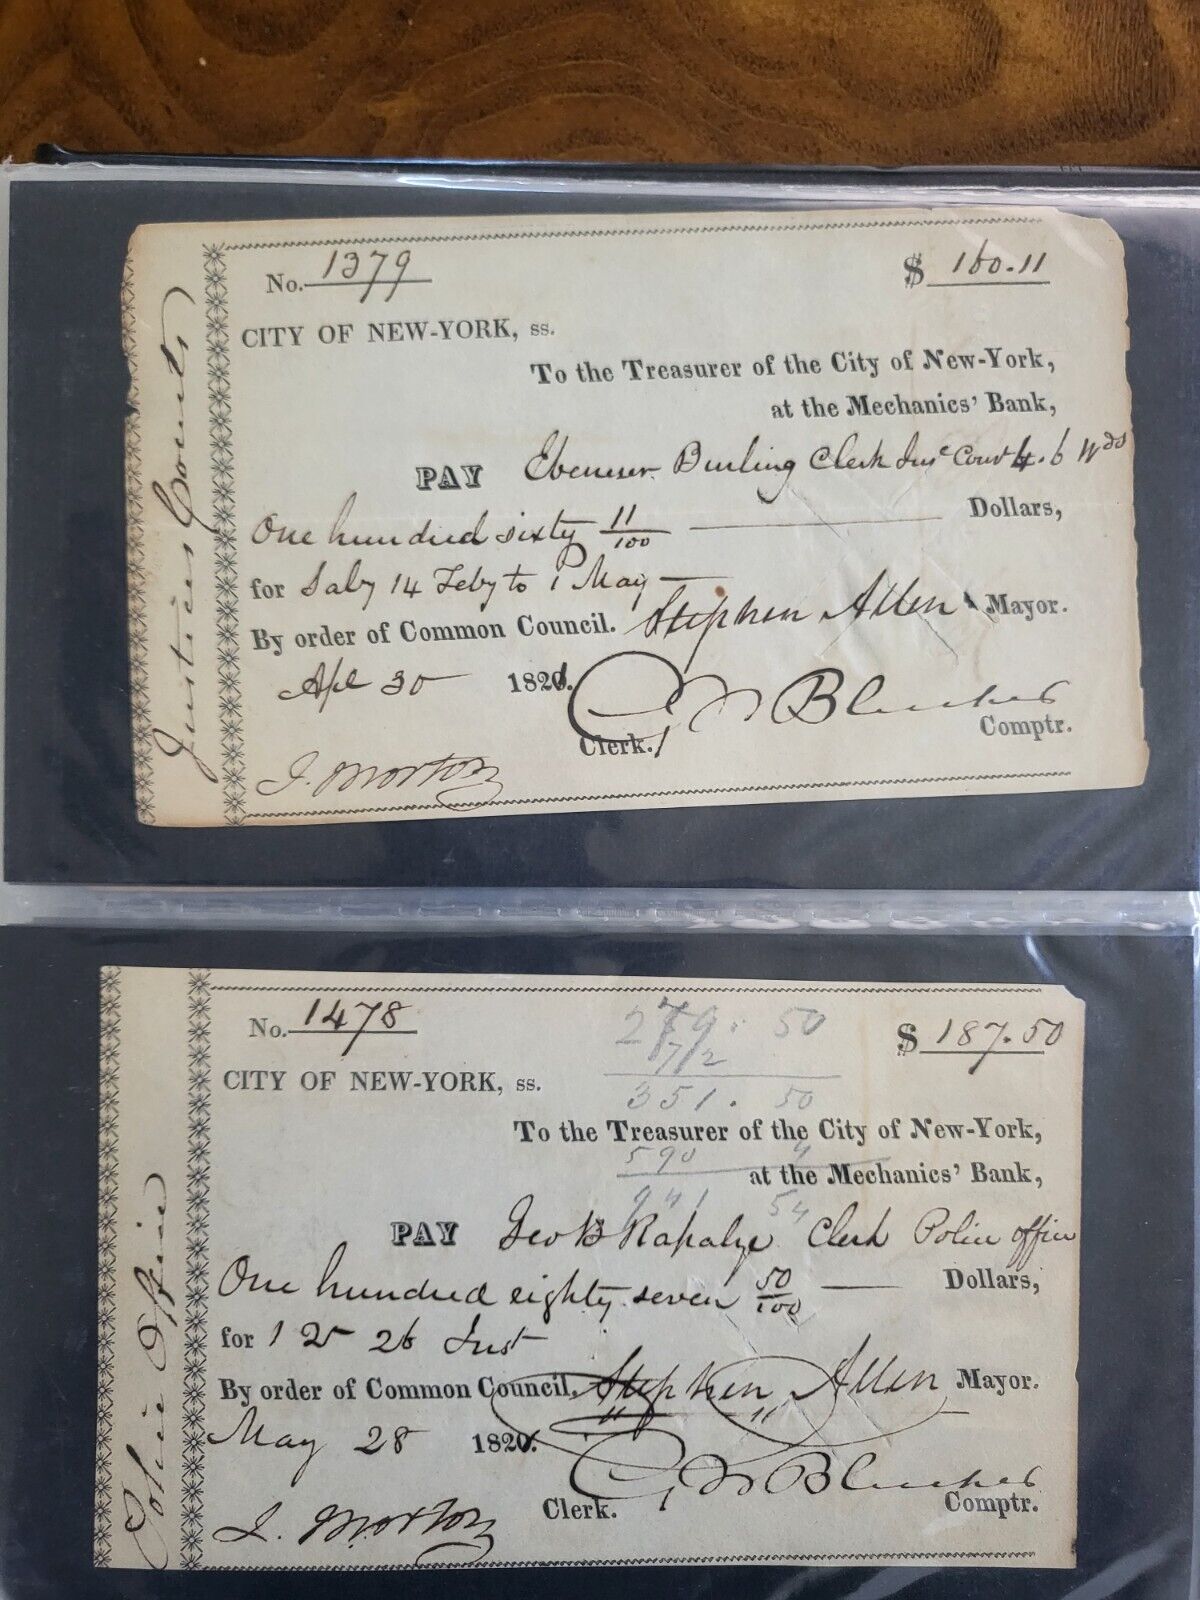 Justices Courts
No. 1379
$ 160.11
CITY OF NEW-YORK, ss.
To the Treasurer of the City of New-York,
at the Mechanics' Bank,
PAY Ebenezer Burling Clerk Juse Court 4. 6 Wds
One hundred sixty 11/100 Dollars,
for Saly 14 Feby to 1 May
By order of Common Council. Stephen Allen Mayor.
Apl 30 1821.
Clerk. Comptr.
J. Morton
Police Office
No. 1478
279. 50
$ 187.50
72
CITY OF NEW-YORK, ss.
351. 50
To the Treasurer of the City of New-York,
590 4
at the Mechanics' Bank,
941 54
PAY Geo B Rapalye Clerk Police office
One hundred eighty seven 50/100 Dollars,
for 1 Inst
By order of Common Council. Stephen Allen Mayor.
May 28 1821.
Clerk. Comptr.
J. Morton